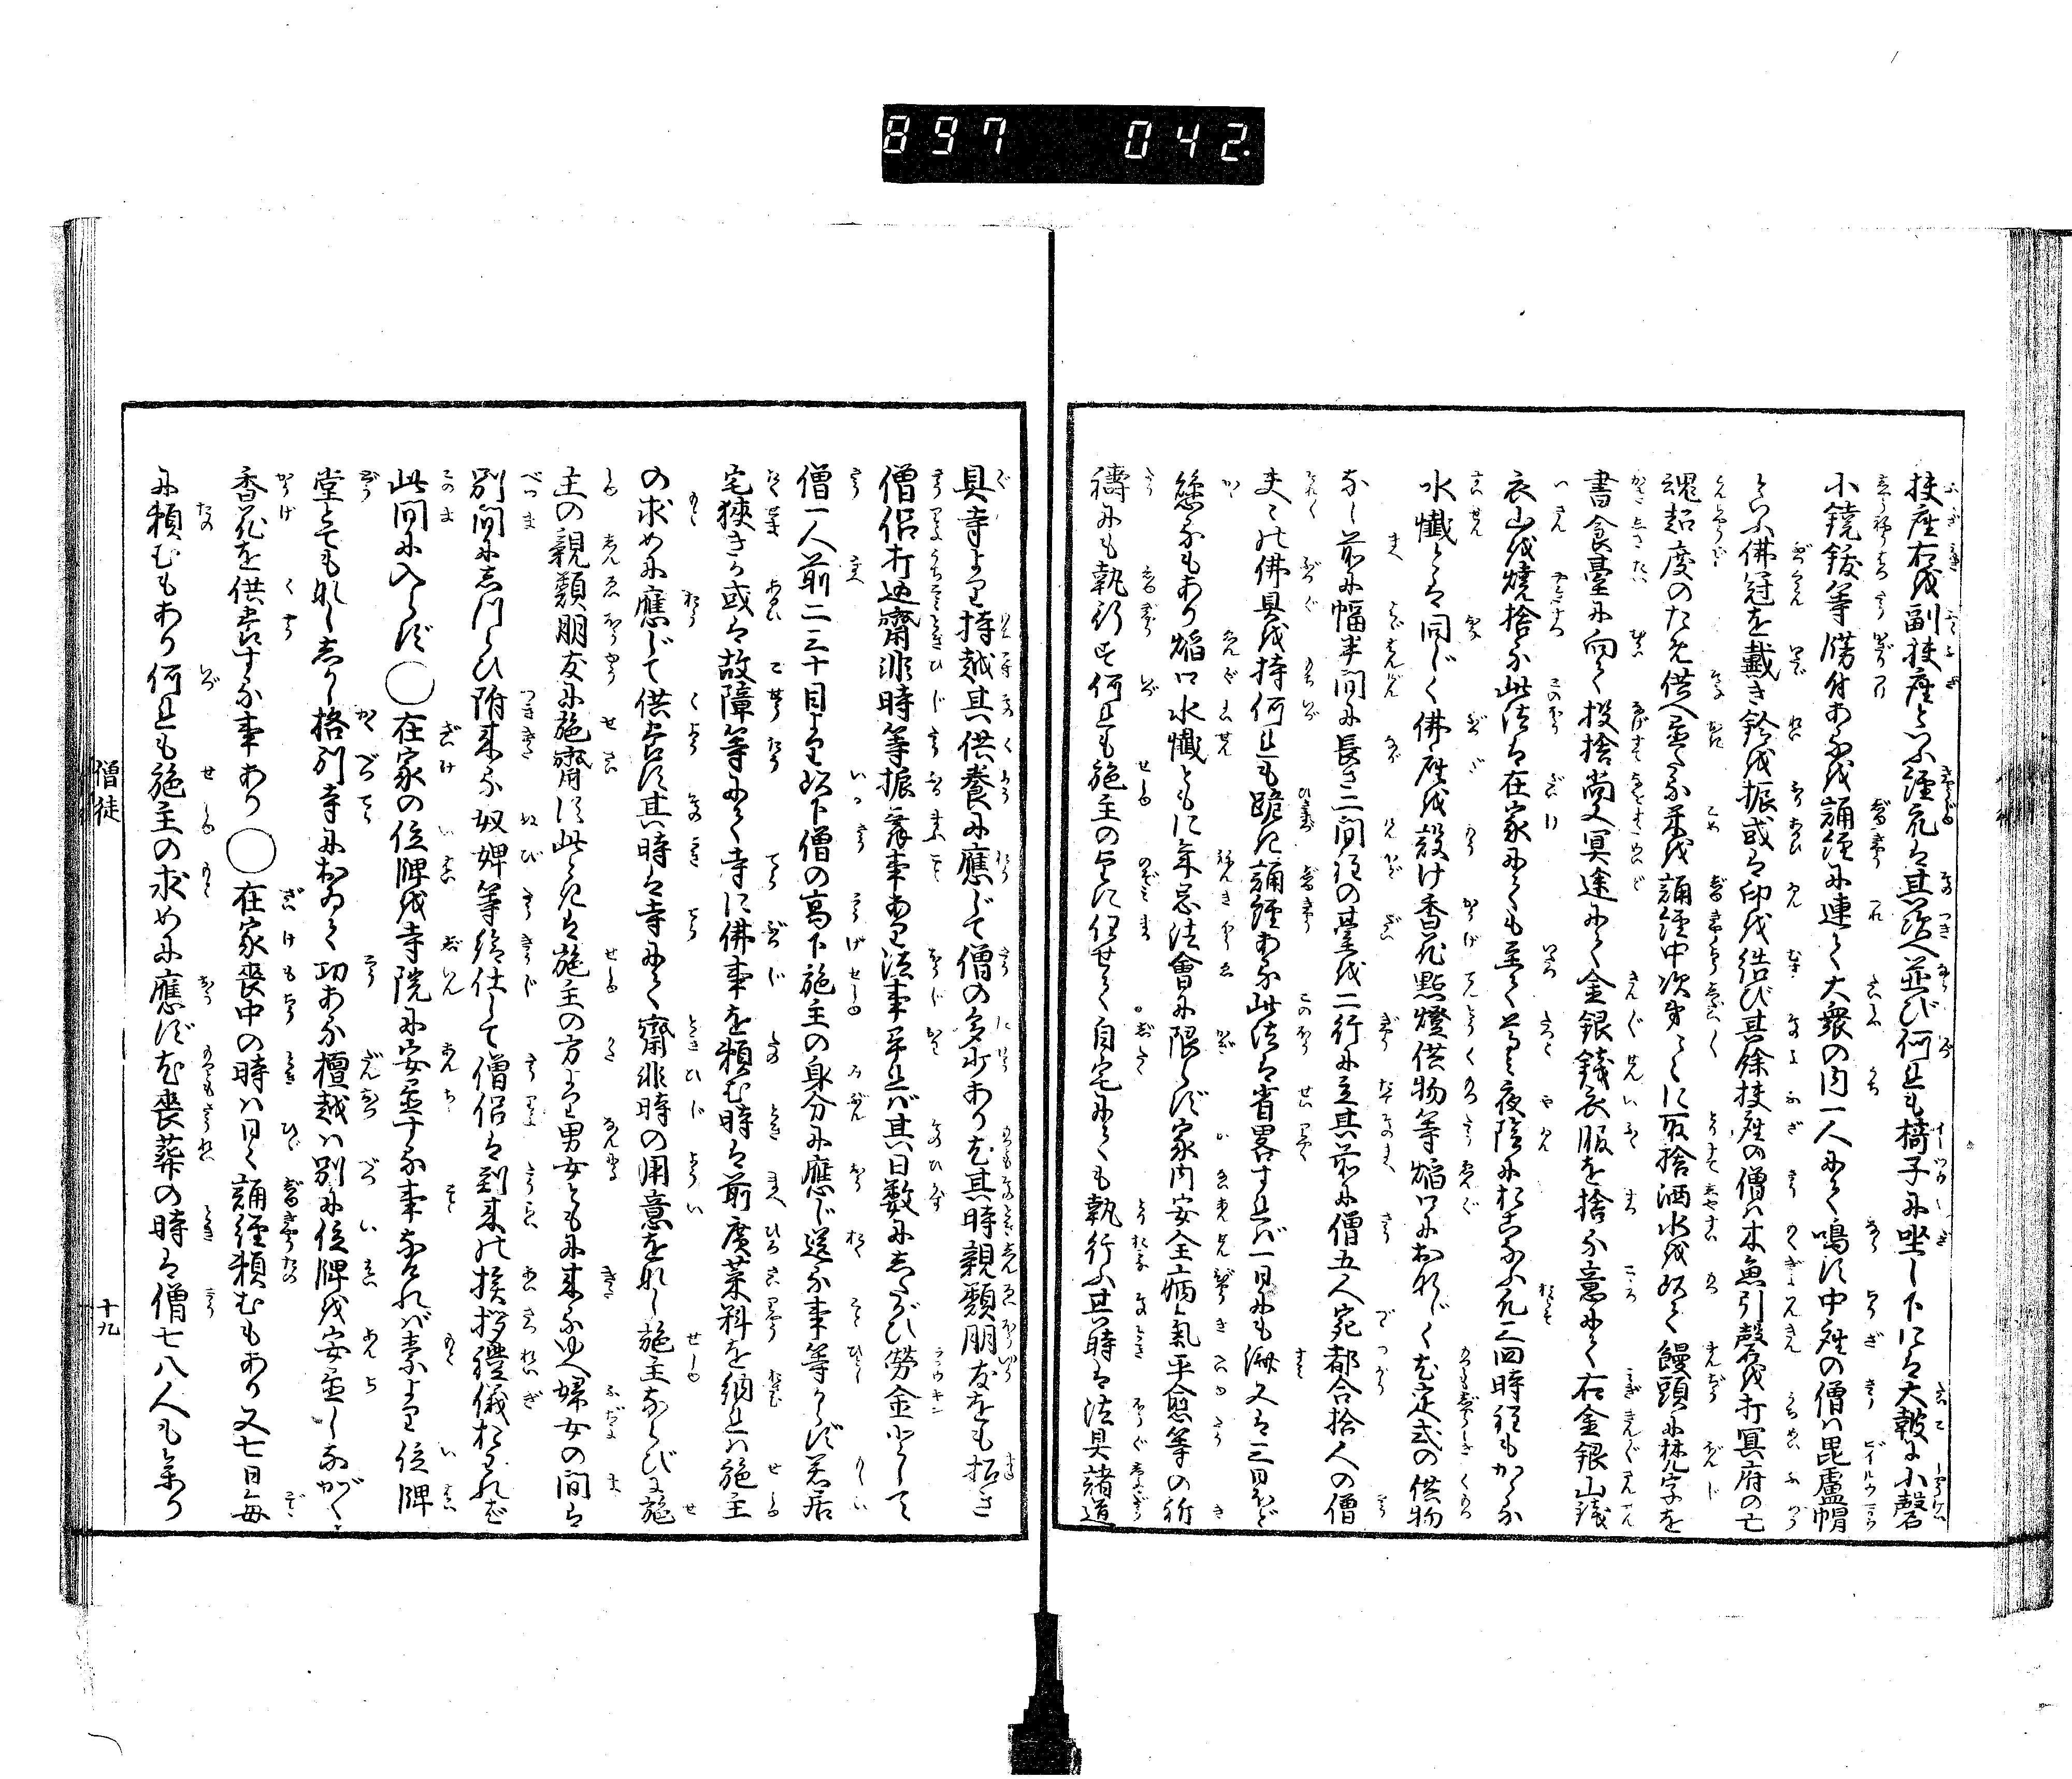 897 042.
扶座右を副扶座といふ經机は其次へ並び何れも椅子に坐し下には大皷に小磬
小鐃鈸等備付あるを誦經に連て大衆の内一人にて鳴す中座の僧は毘盧帽
といふ佛冠を戴き鈴を振或は印を結び其餘扶座の僧は木魚引磬を打冥府の亡
魂超度のため供へ置たる米を誦經中次第〱に取捨洒水を灑て饅頭に梵字を
書食臺に向て投捨尚又冥途にて金銀錢衣服を捨る意にて右金銀山錢
衣山を燒捨る此法は在家にても至て尊く夜陰におこなふ凡二四時程もかゝる
水懺とは同じく佛座を設け香花點燈供物等焰口におなじく尤定式の供物
なし前に幅半間に長き二間程の臺を二行に立其前に僧五人宛都合拾人の僧
夫〻佛具を持何れも跪き誦經ある此法は省畧すれば一日にも濟又は三日ほど
懸るもあり焰口水懺ともに年忌法會に限らず家内安全病氣平愈等の祈
禱にも執行ふ何れも施主の望に任せて自宅にても執行ふ其時は法具諸道
具寺より持越其供養に應じて僧の多少あり尤其時親類朋友をも招き
僧侶打込齋非時等振舞事あり法事畢れば其日數にしたがひ勞金として
僧一人前二三十目より以下僧の高下施主の身分に應じ送る事等からず若居
宅狹きか或は故障等にて寺に佛事を頼む時は前廣菜料を納れば施主
の求めに應じて供養す其時は寺にて齋非時の用意をなし施主ならびに施
主の親類朋友に施齋す此ときは施主の方より男女ともに來るゆへ婦女の間は
別間にしつらひ附來る奴婢等給仕して僧侶は到來の挨拶禮儀おはれば
此間に入らず〇在家の位牌を寺院に安置する事なければ素より位牌
堂とてもなし然し格別寺において功ある檀越は別に位牌を安置しながく
香花を供養する事あり〇在家喪中の時は日〻誦經頼むもあり又七日每
に頼むもあり何れも施主の求めに應ず尤喪葬の時は僧七八人も來り
僧徒
十九